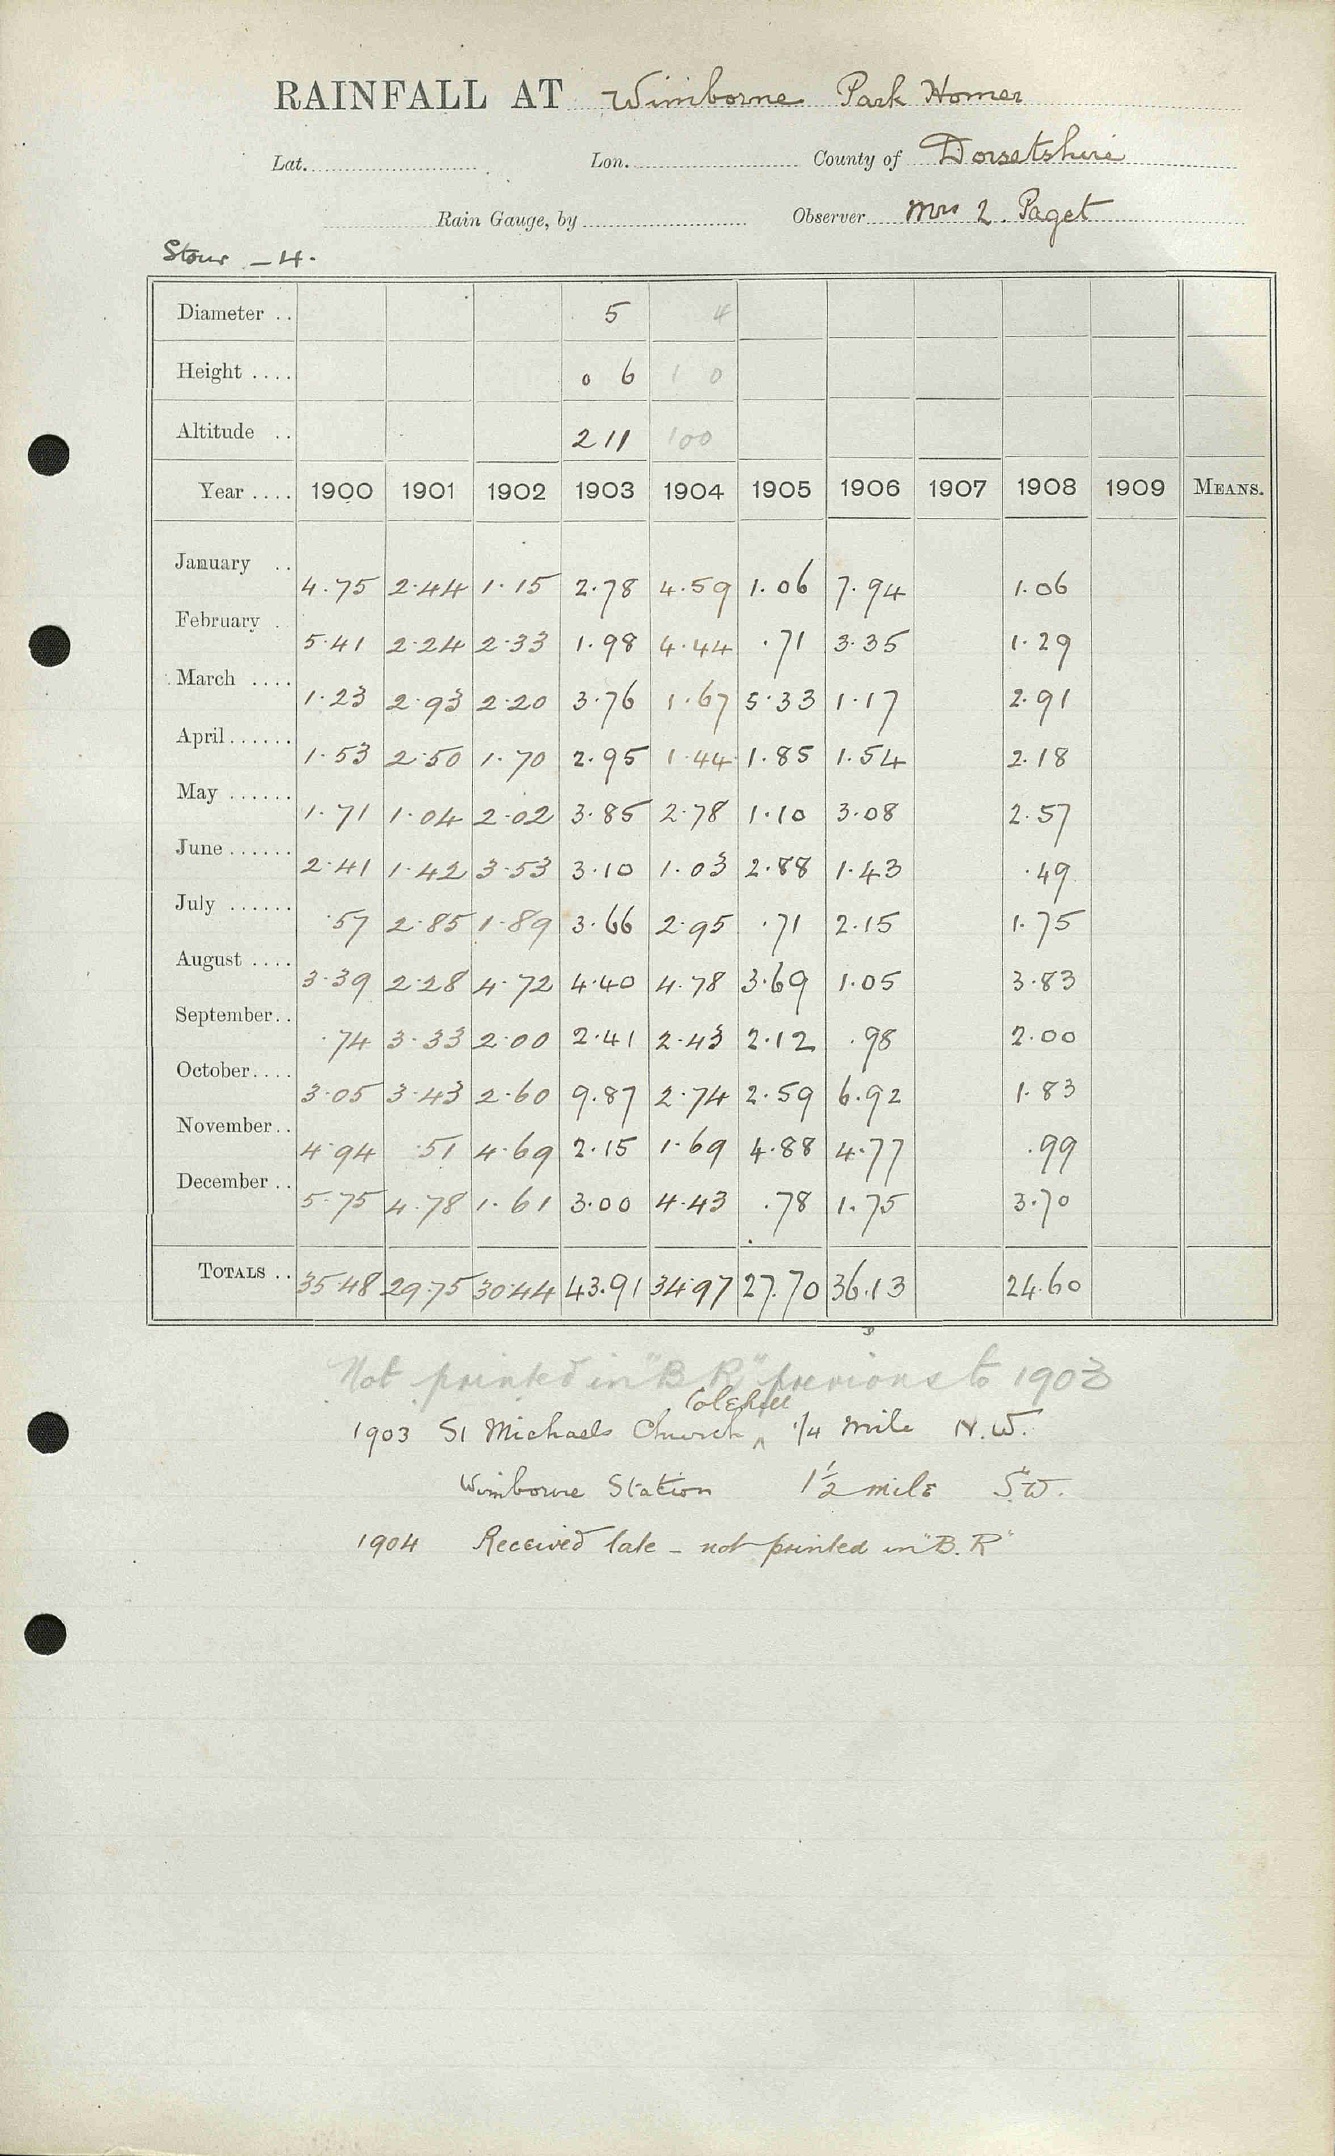 RAINFALL AT Wimborne Park Homer
Lat. Lon. County of Dorsetshire
Rain Gauge, by Observer Mrs L. Paget
Stour - 4.
Diameter .. 5 4
Height .... 0 6 1 0
Altitude .. 211 100
Year .... 1900 1901 1902 1903 1904 1905 1906 1907 1908 1909 MEANS.
January .. 4.75 2.44 1.15 2.78 4.59 1.06 7.94 1.06
February . 5.41 2.24 2.33 1.98 4.44 .71 3.35 1.29
March .... 1.23 2.93 2.20 3.76 1.67 5.33 1.17 2.91
April...... 1.53 2.50 1.70 2.95 1.44 1.85 1.54 2.18
May ...... 1.71 1.04 2.02 3.85 2.78 1.10 3.08 2.57
June...... 2.41 1.42 3.53 3.10 1.03 2.88 1.43 .49
July ...... .57 2.85 1.89 3.66 2.95 .71 2.15 1.75
August .... 3.39 2.28 4.72 4.40 4.78 3.69 1.05 3.83
September.. .74 3.33 2.00 2.41 2.43 2.12 .98 2.00
October.... 3.05 3.43 2.60 9.87 2.74 2.59 6.92 1.83
November.. 4.94 .51 4.69 2.15 1.69 4.88 4.77 .99
December .. 5.75 4.78 1.61 3.00 4.43 .78 1.75 3.70
TOTALS .. 35.48 29.75 30.44 43.91 34.97 27.70 36.13 24.60
Not printed in "B R" previous to 1903
Colehill
1903 St Michaels Church ^ 1/4 mile N.W.
Wimborne Station 1 1/2 mile S.W.
1904 Received late - not printed in "B.R"